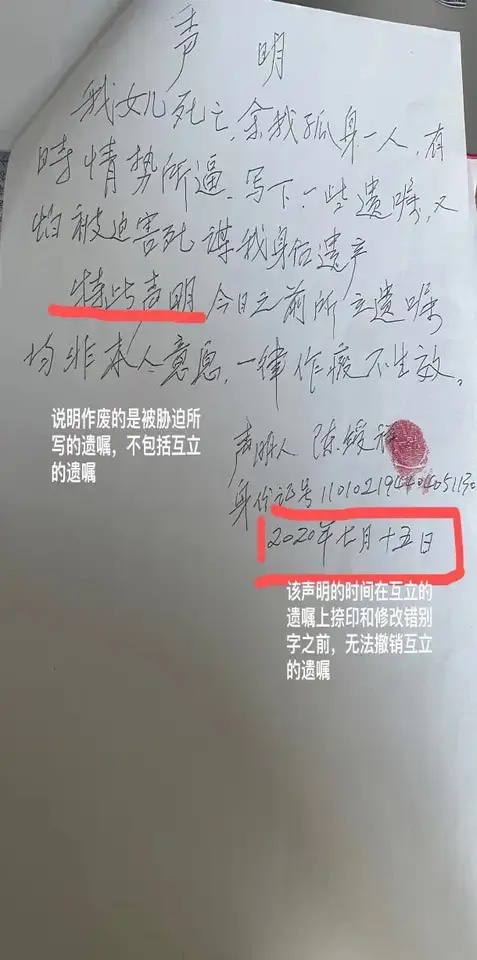 声明
我女儿死亡,余我孤身一人,有
时情势所逼、写下一些遗嘱,又
怕被迫害死谋我身后遗产
特此声明今日之前所立遗嘱
均非本人意愿,一律作废不生效。
说明作废的是被胁迫所
写的遗嘱,不包括互立
的遗嘱
声明人 陈绶祥
身份证号
2020年七月十五日
该声明的时间在互立的
遗嘱上捺印和修改错别
字之前,无法撤销互立
的遗嘱